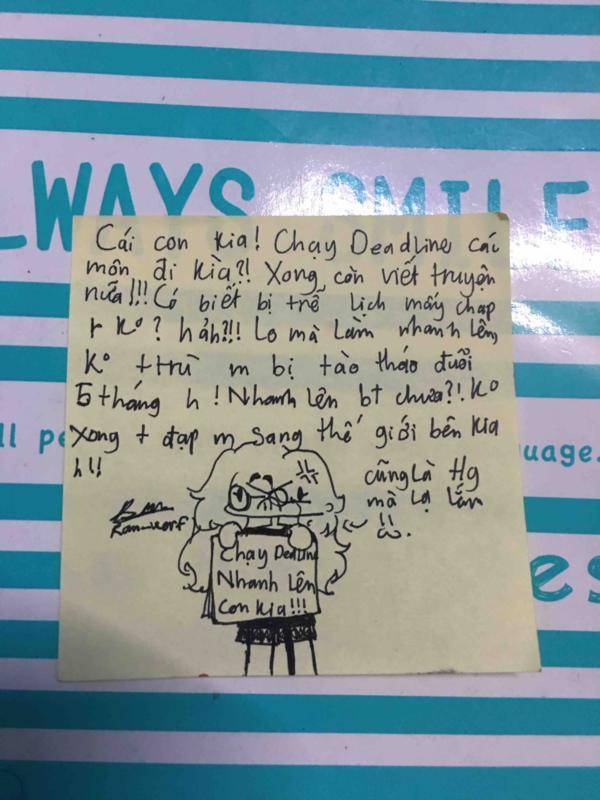 WAYS SMILE
Cái con kia! Chạy Deadline các
môn đi kìa?! Xong còn viết truyện
nữa!!! Có biết bị trễ lịch mấy chap
r Ko? hảh?!! Lo mà làm nhanh lên,
Ko t trù m bị tào tháo đuổi
5 tháng h! Nhanh lên bt chưa?! Ko
Xong t đạp m sang thế giới bên kia
h!!
cũng là Hg
mà lạ lắm
Chạy Deadline
Nhanh Lên
Con kia!!!
ll pe
uage.
es